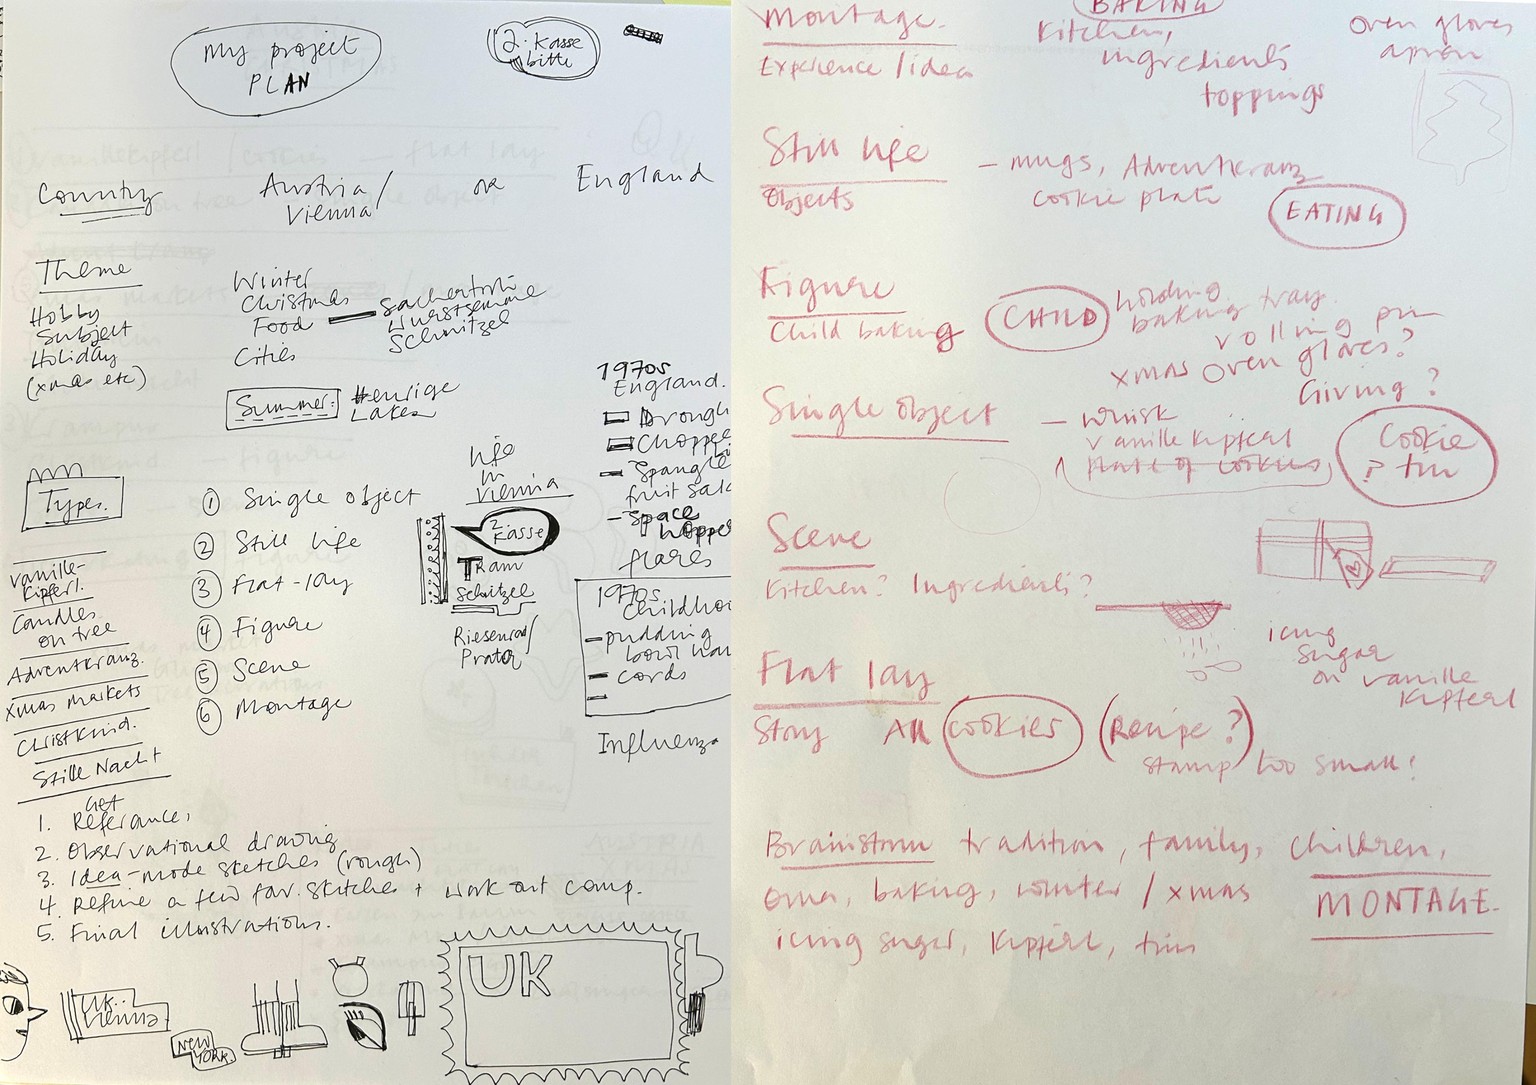 My project
PLAN
2. Kasse
bitte
Country
Austria/
Vienna
or
England
Theme
Hobby
Subject
Holiday
(xmas etc)
Winter
Christmas
Food
Cities
Sachertorte
Wurstsemmel
Schnitzel
Summer:
Heurige
Lakes
1970s
England.
Drough
Choppe
Spangle
fruit sala
Space
hopper
flares
1970s
Childhoo
pudding
bowl hair
cords
Influenza
Life
in
Vienna
2 Kasse
Tram
Schnitzel
Riesenrad/
Prater
Types.
1 Single object
2 Still life
3 Flat-lay
4 Figure
5 Scene
6 Montage
Vanille-
Kipferl.
Candles
on tree
Adventkranz.
Xmas markets
Christkind.
Stille Nacht
Get
1. Referance,
2. Observational drawing
3. Idea-mode sketches (rough)
4. Refine a few fav. sketches + work out comp.
5. Final illustrations.
UK..
Vienna
NEW
YORK.
UK
Montage.
Experience/idea
BAKING
Kitchen,
ingredients
toppings
Oven gloves
apron
Still life
Objects
- mugs, Adventkranz
cookie plate
EATING
Figure
Child baking
CHILD
holding
baking tray.
rolling pin
xmas oven gloves?
Giving?
Single object
- Whisk
Vanille Kipferl
plate of cookies
Cookie
? tin
Scene
Kitchen? Ingredients?
icing
sugar
on vanille
Kipferl
Flat lay
Story
All cookies (Recipe?)
stamp too small!
Brainstorm tradition, family, children,
oma, baking, winter / xmas
icing sugar, Kipferl, tin
MONTAGE.